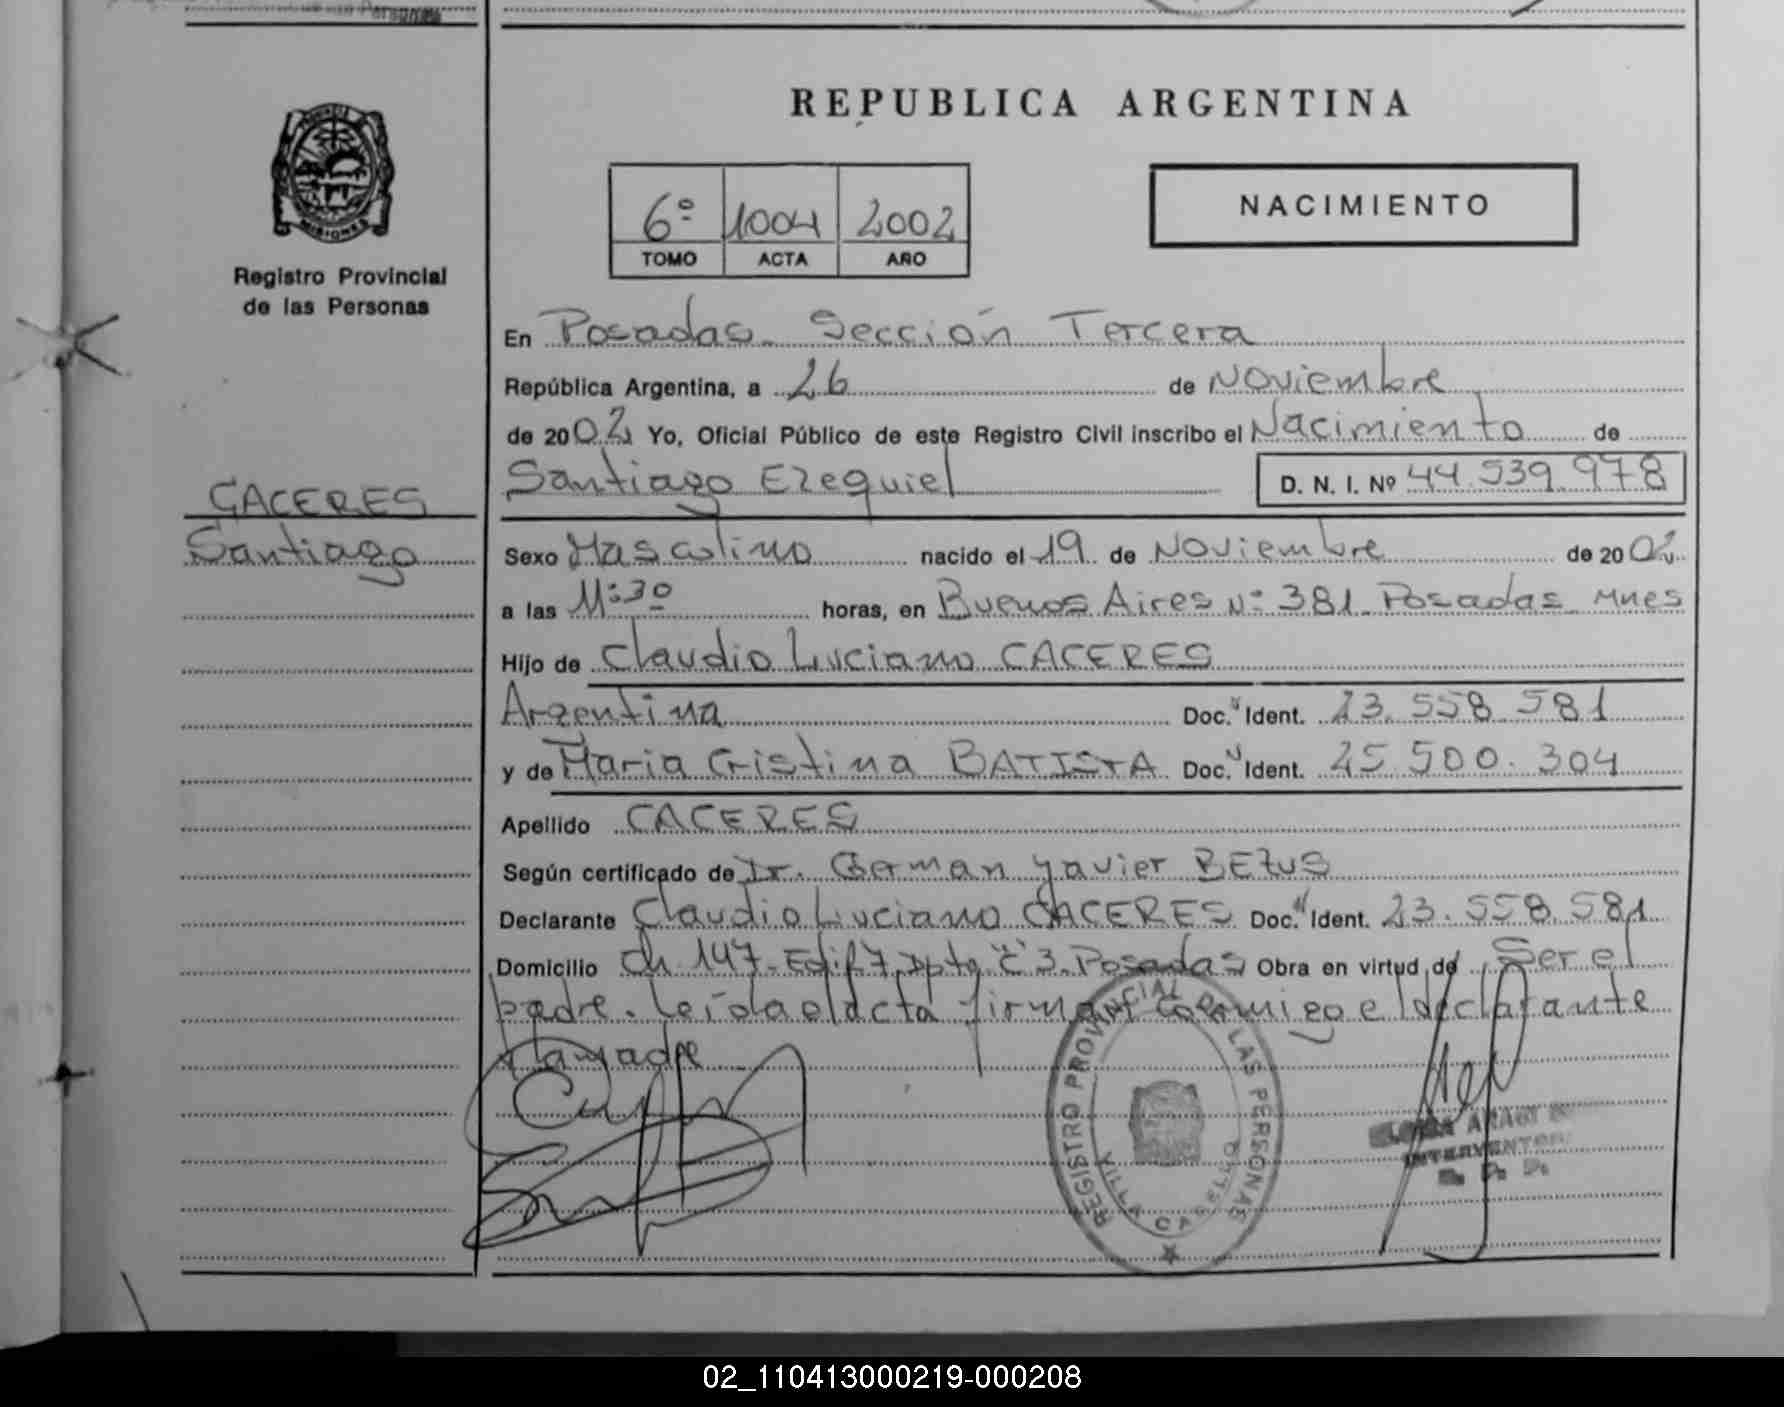 REPUBLICA ARGENTINA
PROVINCIA
MISIONES
Registro Provincial
de las Personas
6º 1004 2002
TOMO ACTA AÑO
NACIMIENTO
En Posadas. Sección Tercera
República Argentina, a 26 de Noviembre
de 2002 Yo, Oficial Público de este Registro Civil inscribo el Nacimiento de
Santiago Ezequiel D. N. I. Nº 44.539.978
CACERES
Santiago
Sexo Masculino nacido el 19 de Noviembre de 2002
a las 11:30 horas, en Buenos Aires Nº 381 Posadas Mnes
Hijo de Claudio Luciano CACERES
Argentina Doc. Ident. 23.558.581
y de Maria Cristina BATISTA Doc. Ident. 25.500.304
Apellido CACERES
Según certificado de Dr. German Javier BEZUS
Declarante Claudio Luciano CACERES Doc. Ident. 23.558.581
Domicilio Ch 147- Edif 7, Dpto "C" 3. Posadas Obra en virtud de Ser el
padre. Leída el acta firman conmigo el declarante
y la madre
REGISTRO PROVINCIAL DE LAS PERSONAS
VILLA CABELLO
INTERVENTOR
02_110413000219-000208